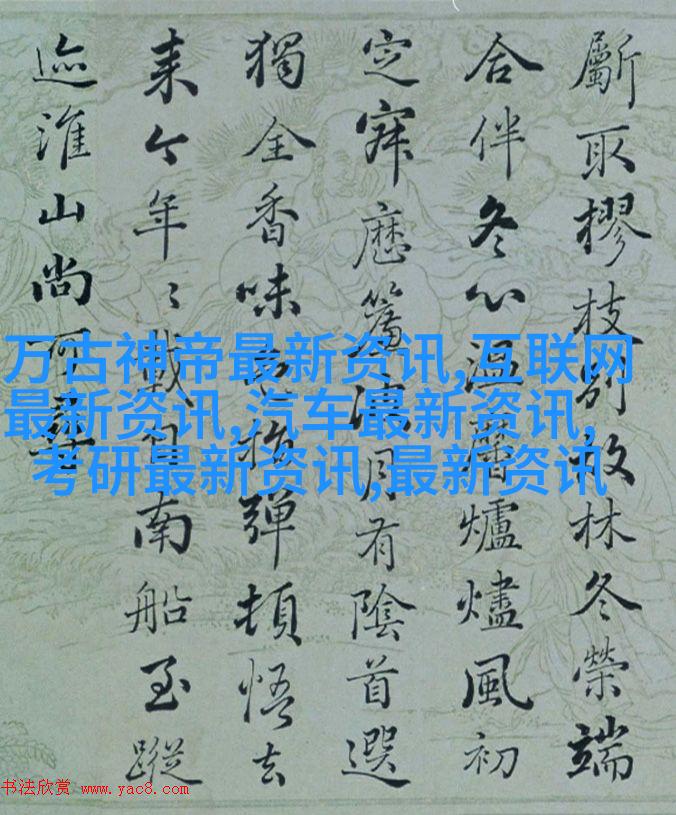 取樛枝别故林冬榮端
合伴冬心温爐燼風初
定寐歷簾波月有陰首選
獨全香味指彈頓悟去
来今年〻載南船至蹤
迹淮山尚可尋
万古神帝最新资讯,互联网
最新资讯,汽车最新资讯,
考研最新资讯,最新资讯
书法欣赏 www.yac8.com